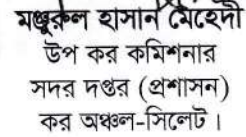 মঞ্জুরুল হাসান মেহেদী
উপ কর কমিশনার
সদর দপ্তর (প্রশাসন)
কর অঞ্চল-সিলেট।